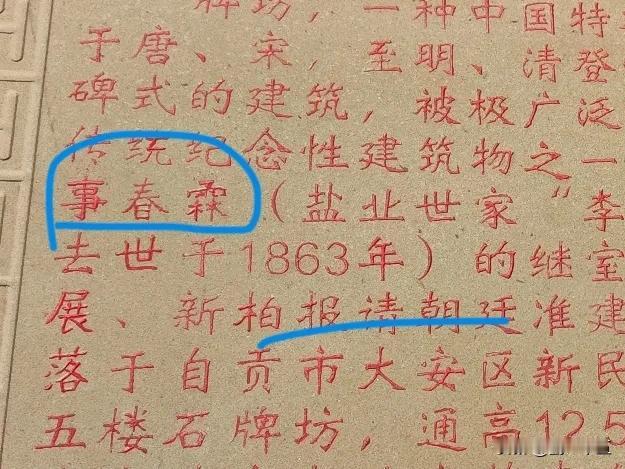 牌坊，一种中国特
于唐、宋，至明、清登
碑式的建筑，被极广泛
传统纪念性建筑物之一
事春霖（盐业世家“李
去世于1863年）的继室
展、新柏报请朝廷准建
落于自贡市大安区新民
五楼石牌坊，通高12.5